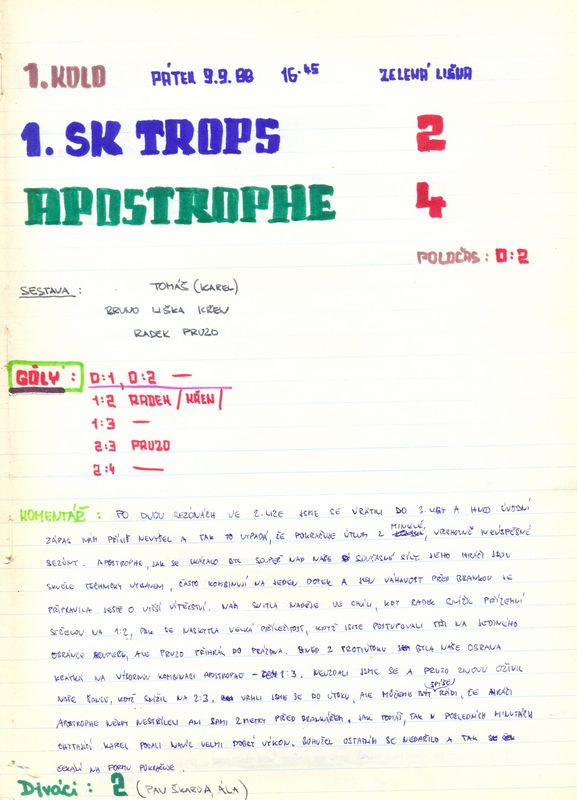 1. KOLO PÁTEK 9.9.88 16.45 ZELENÁ LIŠKA
1. SK TROPS 2
APOSTROPHE 4
POLOČAS : 0:2
SESTAVA : TOMÁŠ (KAREL)
BRUNO LIŠKA KŘEN
RADEK PRUZO
GÓLY : 0:1, 0:2 —
1:2 RADEK /KŘEN/
1:3 —
2:3 PRUZO
2:4 —
KOMENTÁŘ : PO DVOU SEZÓNÁCH VE 2. LIZE JSME SE VRÁTILI DO 3. LIGY A HNED ÚVODNÍ
ZÁPAS NÁM PŘÍLIŠ NEVYŠEL A TAK TO VYPADÁ, ŽE POKRAČUJE ÚTLUM Z MINULÉ, VRCHOLNĚ NEÚSPĚŠNÉ
SEZÓNY. APOSTROPHE, JAK SE UKÁZALO BYL SOUPEŘ NAD NAŠE SOUČASNÉ SÍLY. JEHO HRÁČI JSOU
SKVĚLE TECHNICKY VYBAVENI, ČASTO KOMBINUJÍ NA JEDEN DOTEK A JEN VÁHAVOST PŘED BRANKOU JE
PŘIPRAVILA JEŠTĚ O VYŠŠÍ VÍTĚZSTVÍ. NÁM SVITLA NADĚJE VE CHVÍLI, KDY RADEK SNÍŽIL PŘÍZEMNÍ
STŘELOU NA 1:2, PAK SE NASKYTLA VELKÁ PŘÍLEŽITOST, KDYŽ JSME POSTUPOVALI TŘI NA JEDINÉHO
OBRÁNCE SOUPEŘE, ALE PRUZO PŘIHRÁL DO PRÁZDNA. IHNED Z PROTIÚTOKU BYLA NAŠE OBRANA
KRÁTKÁ NA VÝBORNOU KOMBINACI APOSTROPHE - 1:3. NEVZDALI JSME SE A PRUZO ZNOVU OŽIVIL
NAŠE ŠANCE, KDYŽ SNÍŽIL NA 2:3. VRHLI JSME SE DO ÚTOKU, ALE MŮŽEME BÝT SPÍŠE RÁDI, ŽE HRÁČI
APOSTROPHE NĚKDY NESTŘÍLELI ANI SAMI 2 METRY PŘED BRANKÁŘEM. JAK TOMÁŠ, TAK V POSLEDNÍCH MINUTÁCH
CHYTAJÍCÍ KAREL PODALI NAVÍC VELMI DOBRÝ VÝKON. BOHUŽEL OSTATNÍM SE NEDAŘILO A TAK
ČEKÁNÍ NA FORMU POKRAČUJE.
Diváci : 2 (PAV ŠKARDA, ÁLA)